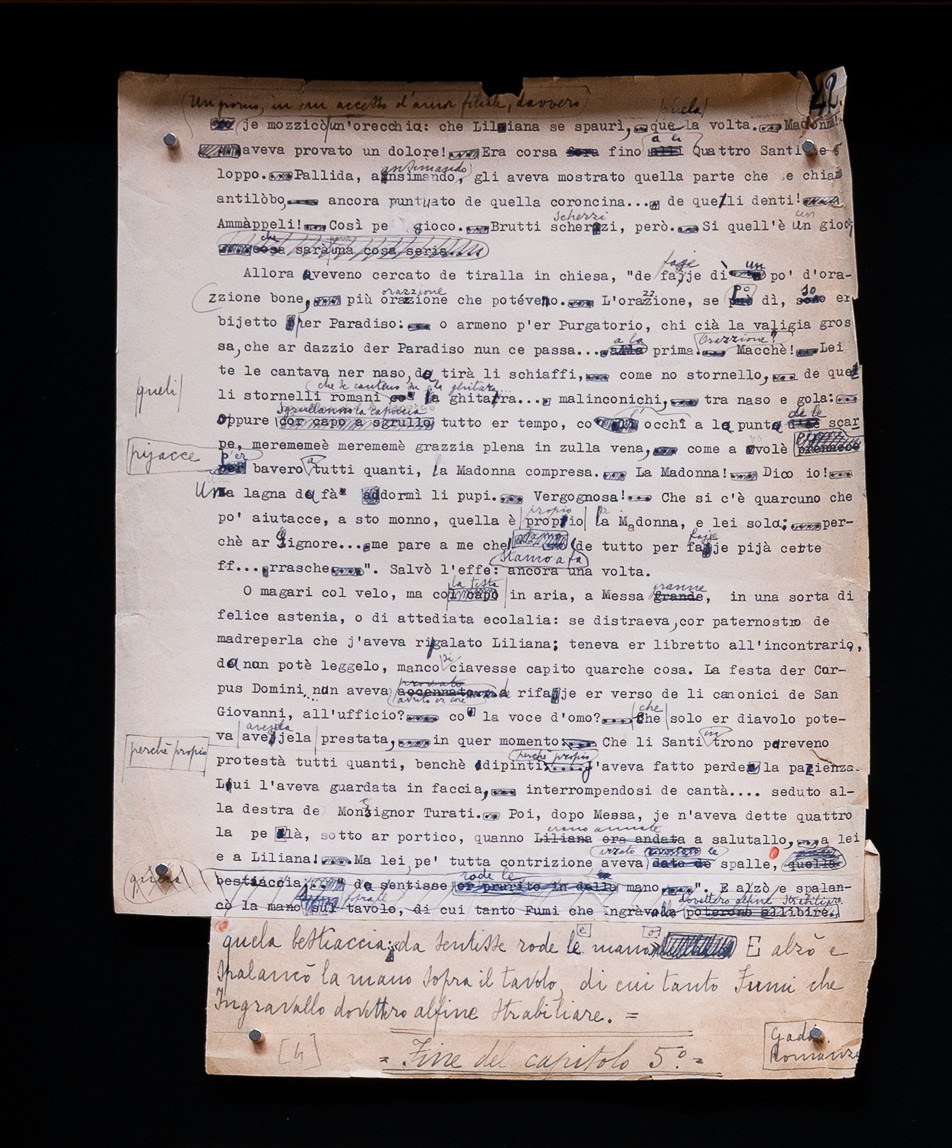 (Un giorno, in un accesso d'amor filiale, davvero)
je mozzicò un'orecchia: che Liliana se spaurì, quela la volta. Madonna!
aveva provato un dolore! Era corsa fino a li Quattro Santi
loppo. Pallida, ansimando, gli aveva mostrato quella parte che se chiama
antilòbo, ancora puntuato de quella coroncina... de quelli denti!
Ammàppeli! Così pe gioco. Brutti scherzi, però. Si quell'è un gioco,
sarà una cosa seria
Allora aveveno cercato de tiralla in chiesa, "de faje di un po' d'ora-
zzione bone, più orazzione che potéveno. L'orazzione, se pò dì, so er
bijetto per Paradiso: o armeno p'er Purgatorio, chi cià la valigia gros
sa, che ar dazzio der Paradiso nun ce passa... a la prima. Orazzione! Macchè! Lei
te le cantava ner naso, da tirà li schiaffi, come no stornello, de quel
li stornelli romani che se canteno su la ghitara... malinconichi, tra naso e gola:
oppure sgrullanno la capoccia tutto er tempo, co occhî a la punta de le scar
pe, meremè meremè grazzia plena in zulla vena, come a volè
pijacce
p'er bavero a tutti quanti, la Madonna compresa. La Madonna! Dio io!
Una lagna da fà addormì li pupi. Vergognosa! Che si c'è quarcuno che
po' aiutacce, a sto monno, quella è propio la Madonna, e lei sola: per-
chè ar Signore... me pare a me che stamo a fa de tutto per faje pijà certe
ff... rrasche". Salvò l'effe: ancora una volta.
O magari col velo, ma co la testa in aria, a Messa granne, in una sorta di
felice astenia, o di attediata ecolalia: se distraeva, cor paternostro de
madreperla che j'aveva rigalato Liliana; teneva er libretto all'incontrario,
da nun potè leggelo, manco si ciavesse capito quarche cosa. La festa der Cor-
pus Domini nun aveva provato rifaje er verso de li canonici de San
Giovanni, all'ufficio? co la voce d'omo? che solo er diavolo pote-
va avejela prestata, in quer momento: Che li Santi in trono pareveno
perchè propio
protestà tutti quanti, benchè dipinti perchè propio j'aveva fatto perde la pazienza.
Lui l'aveva guardata in faccia, interrompendosi de cantà.... seduto al-
la destra de Monsignor Turati. Poi, dopo Messa, je n'aveva dette quattro
la pe llà, sotto ar portico, quanno erano annate a salutallo, a lei
e a Liliana! Ma lei pe' tutta contrizione aveva arzato le spalle, quella
bestiaccia: da sentisse rode le mano". E alzò e spalan-
cò la mano sopra il tavolo, di cui tanto Fumi che Ingravallo dovettero alfine strabiliare.
quela bestiaccia: da sentisse rode le mano E alzò e
spalancò la mano sopra il tavolo, di cui tanto Fumi che
Ingravallo dovettero alfine strabiliare. =
= Fine del capitolo 5º =
[4]
Gadda
Romanzo